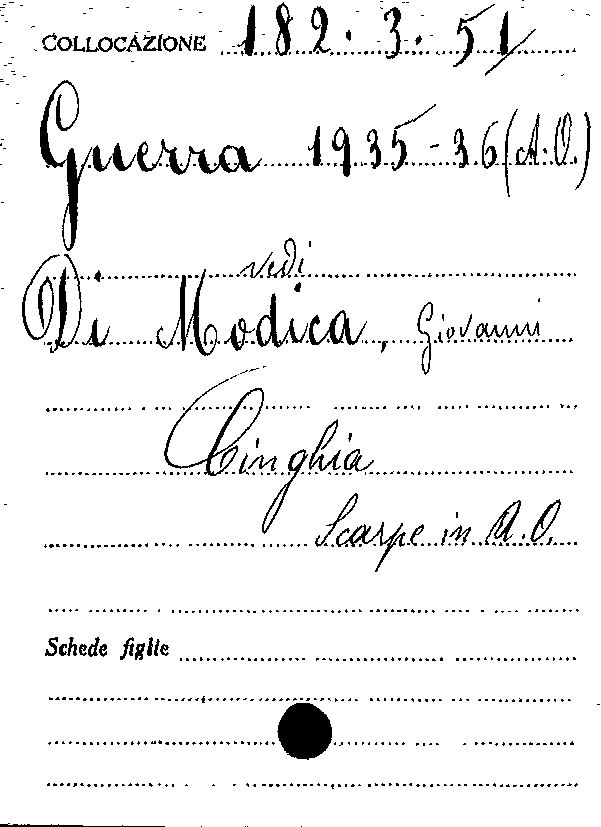 COLLOCAZIONE 182.3.51
Guerra 1935-36 (A.O.)
vedi
Di Modica, Giovanni
Cinghia
Scarpe in A.O.
Schede figlie